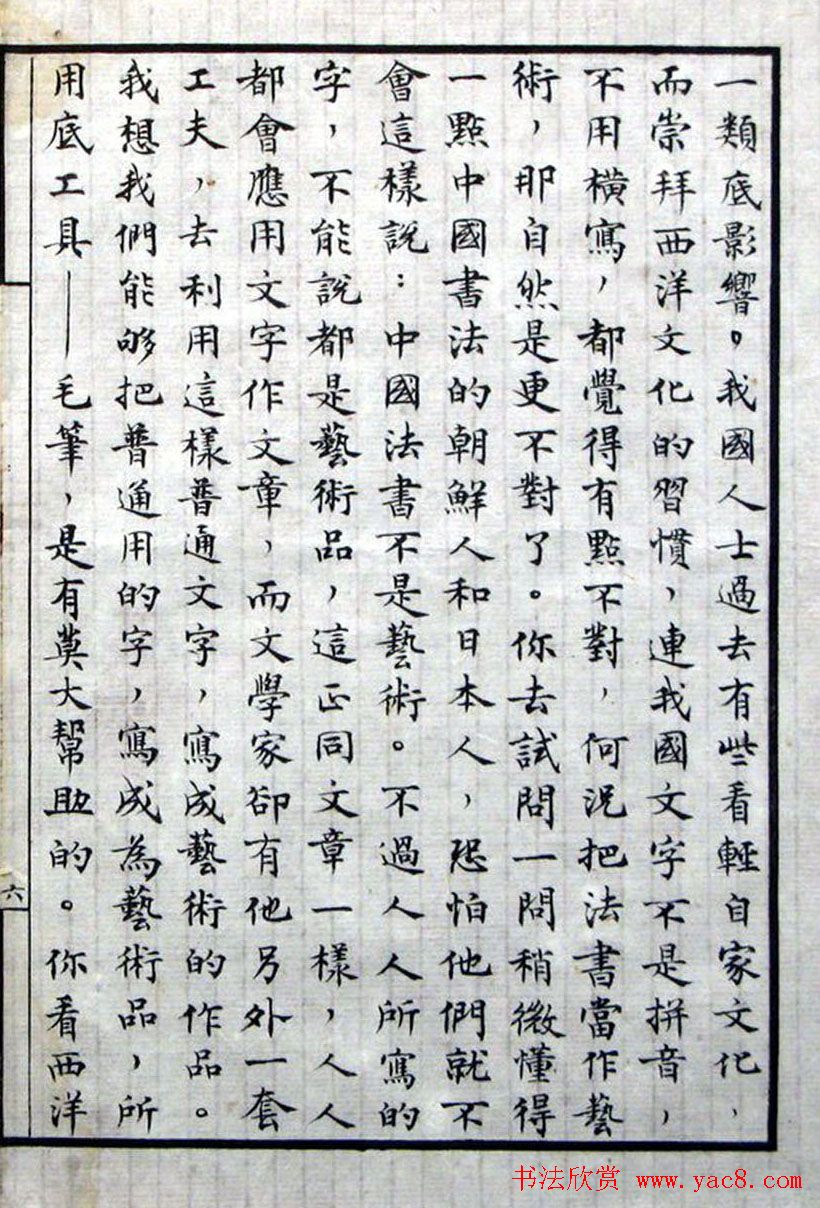 一類底影響。我國人士過去有些看輕自家文化，
而崇拜西洋文化的習慣，連我國文字不是拼音，
不用橫寫，都覺得有點不對，何況把法書當作藝
術，那自然是更不對了。你去試問一問稍微懂得
一點中國書法的朝鮮人和日本人，恐怕他們就不
會這樣說：中國法書不是藝術。不過人人所寫的
字，不能說都是藝術品，這正同文章一樣，人人
都會應用文字作文章，而文學家卻有他另外一套
工夫，去利用這樣普通文字，寫成藝術的作品。
我想我們能够把普通用的字，寫成為藝術品，所
用底工具——毛筆，是有莫大幫助的。你看西洋
六
书法欣赏 www.yac8.com